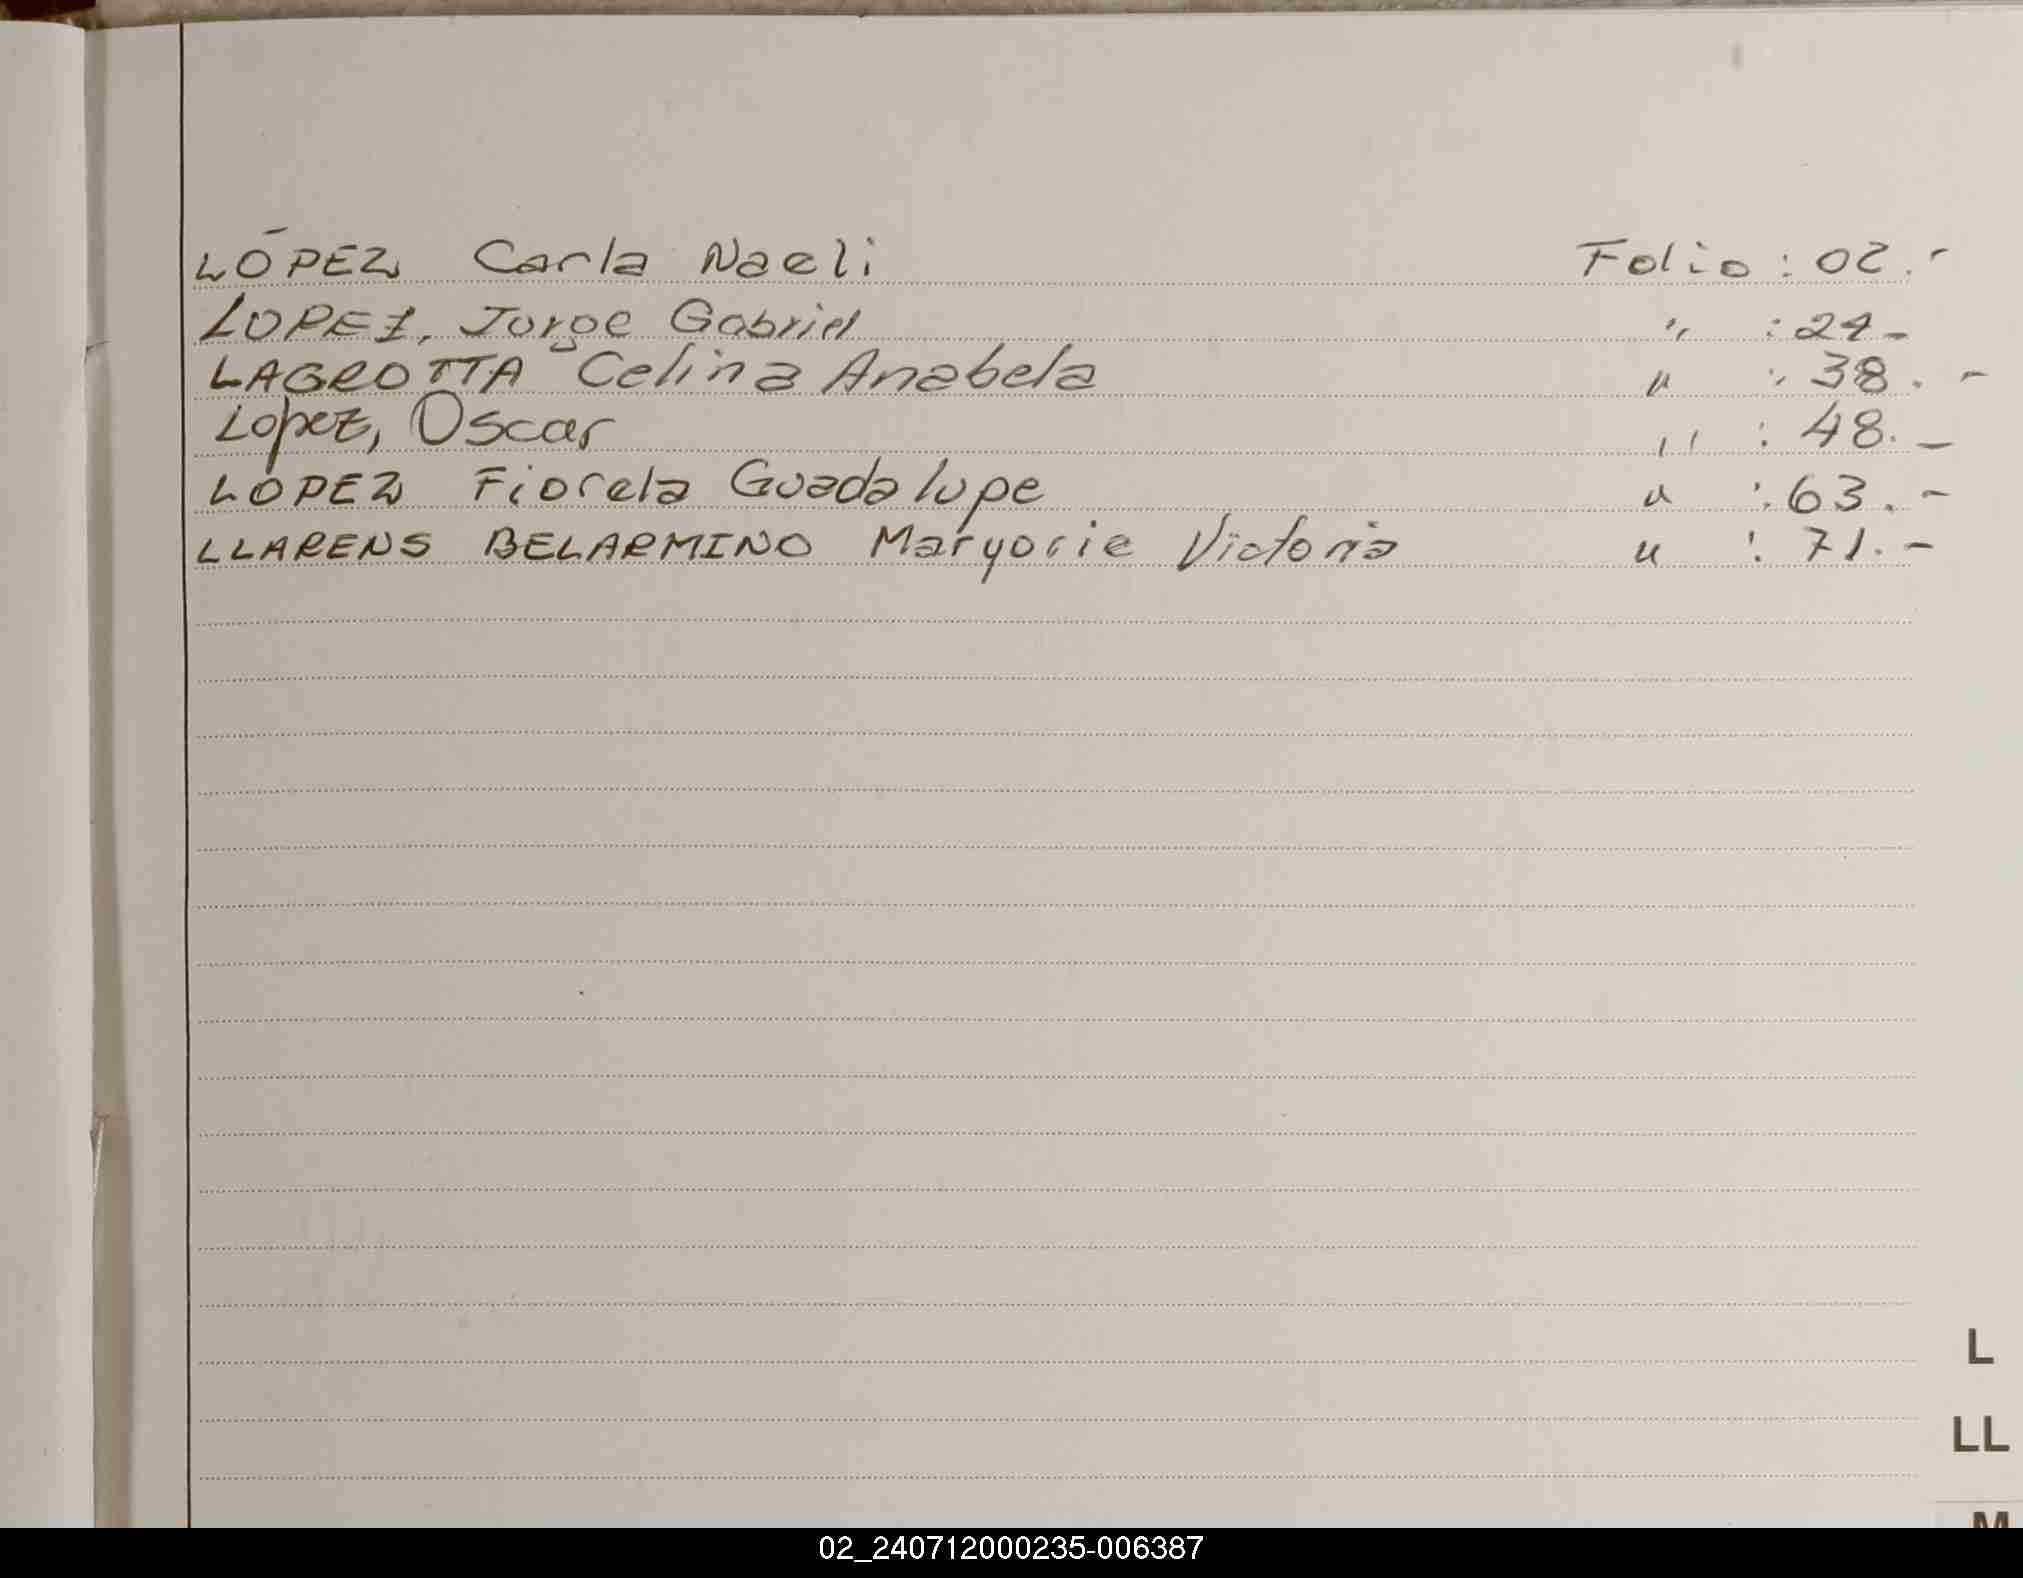 LÓPEZ Carla Naeli Folio : 02.-
LOPEZ, Jorge Gabriel " : 24-
LAGROTTA Celina Anabela " : 38.-
Lopez, Oscar " : 48.-
LOPEZ Fiorela Guadalupe " : 63.-
LLARENS BELARMINO Maryorie Victoria " : 71.-
L
LL
M
02_240712000235-006387